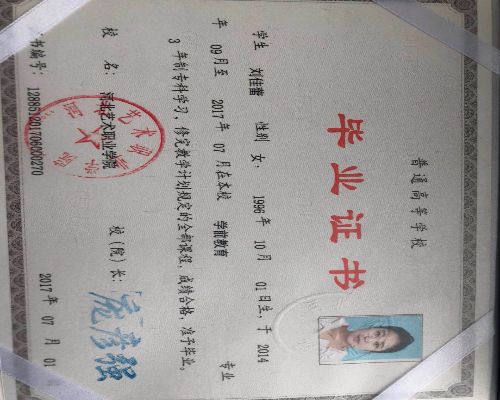 普通高等学校
毕业证书
学生 刘佳蕾 性别 女, 1996年 10月 01日生,于 2014
年 09月至 2017年 07月在本校 学前教育 专业
3 年制专科学习,修完教学计划规定的全部课程,成绩合格,准予毕业。
校 名: 河北艺术职业学院 校(院)长:
书编号: 128851201706000270 2017年 07月 01